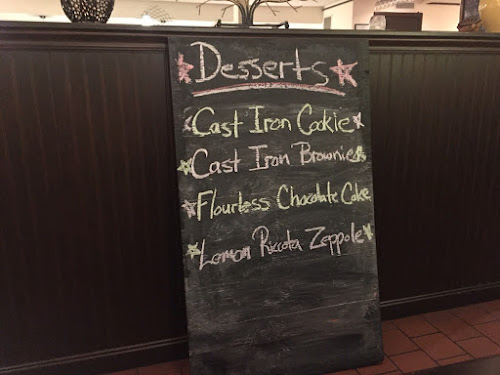 Desserts
Cast Iron Cookie
Cast Iron Brownie
Flourless Chocolate Cake
Lemon Riccota Zeppole